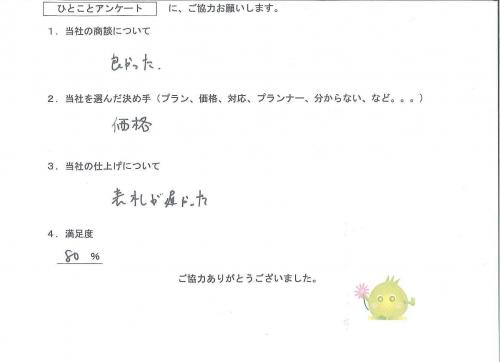 ひとことアンケート に、ご協力お願いします。
1．当社の商談について
良かった.
2．当社を選んだ決め手（プラン、価格、対応、プランナー、分からない、など。。。）
価格
3．当社の仕上げについて
表札が遅かった
4．満足度
80 %
ご協力ありがとうございました。